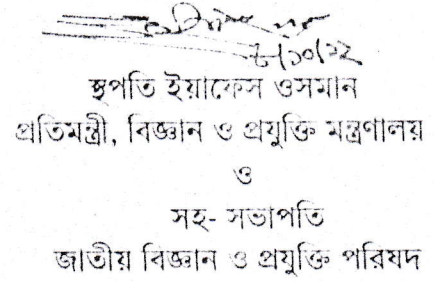 ৮/১০/১২
স্থপতি ইয়াফেস ওসমান
প্রতিমন্ত্রী, বিজ্ঞান ও প্রযুক্তি মন্ত্রণালয়
ও
সহ- সভাপতি
জাতীয় বিজ্ঞান ও প্রযুক্তি পরিষদ